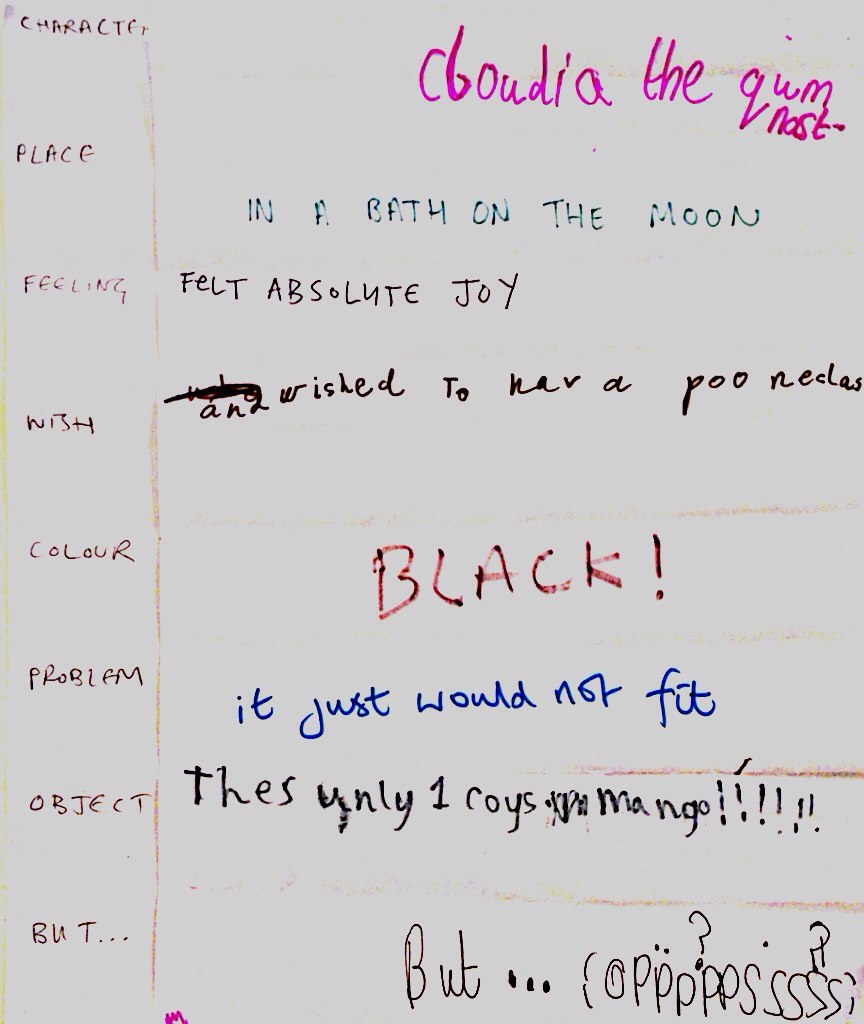 CHARACTER
cloudia the gim
nast.
PLACE
IN A BATH ON THE MOON
FEELING
FELT ABSOLUTE JOY
and wished To hav a poo neclas
WISH
COLOUR
BLACK!
PROBLEM
it just would not fit
OBJECT
Thes only 1 mango!!!!!!
BUT...
But ...